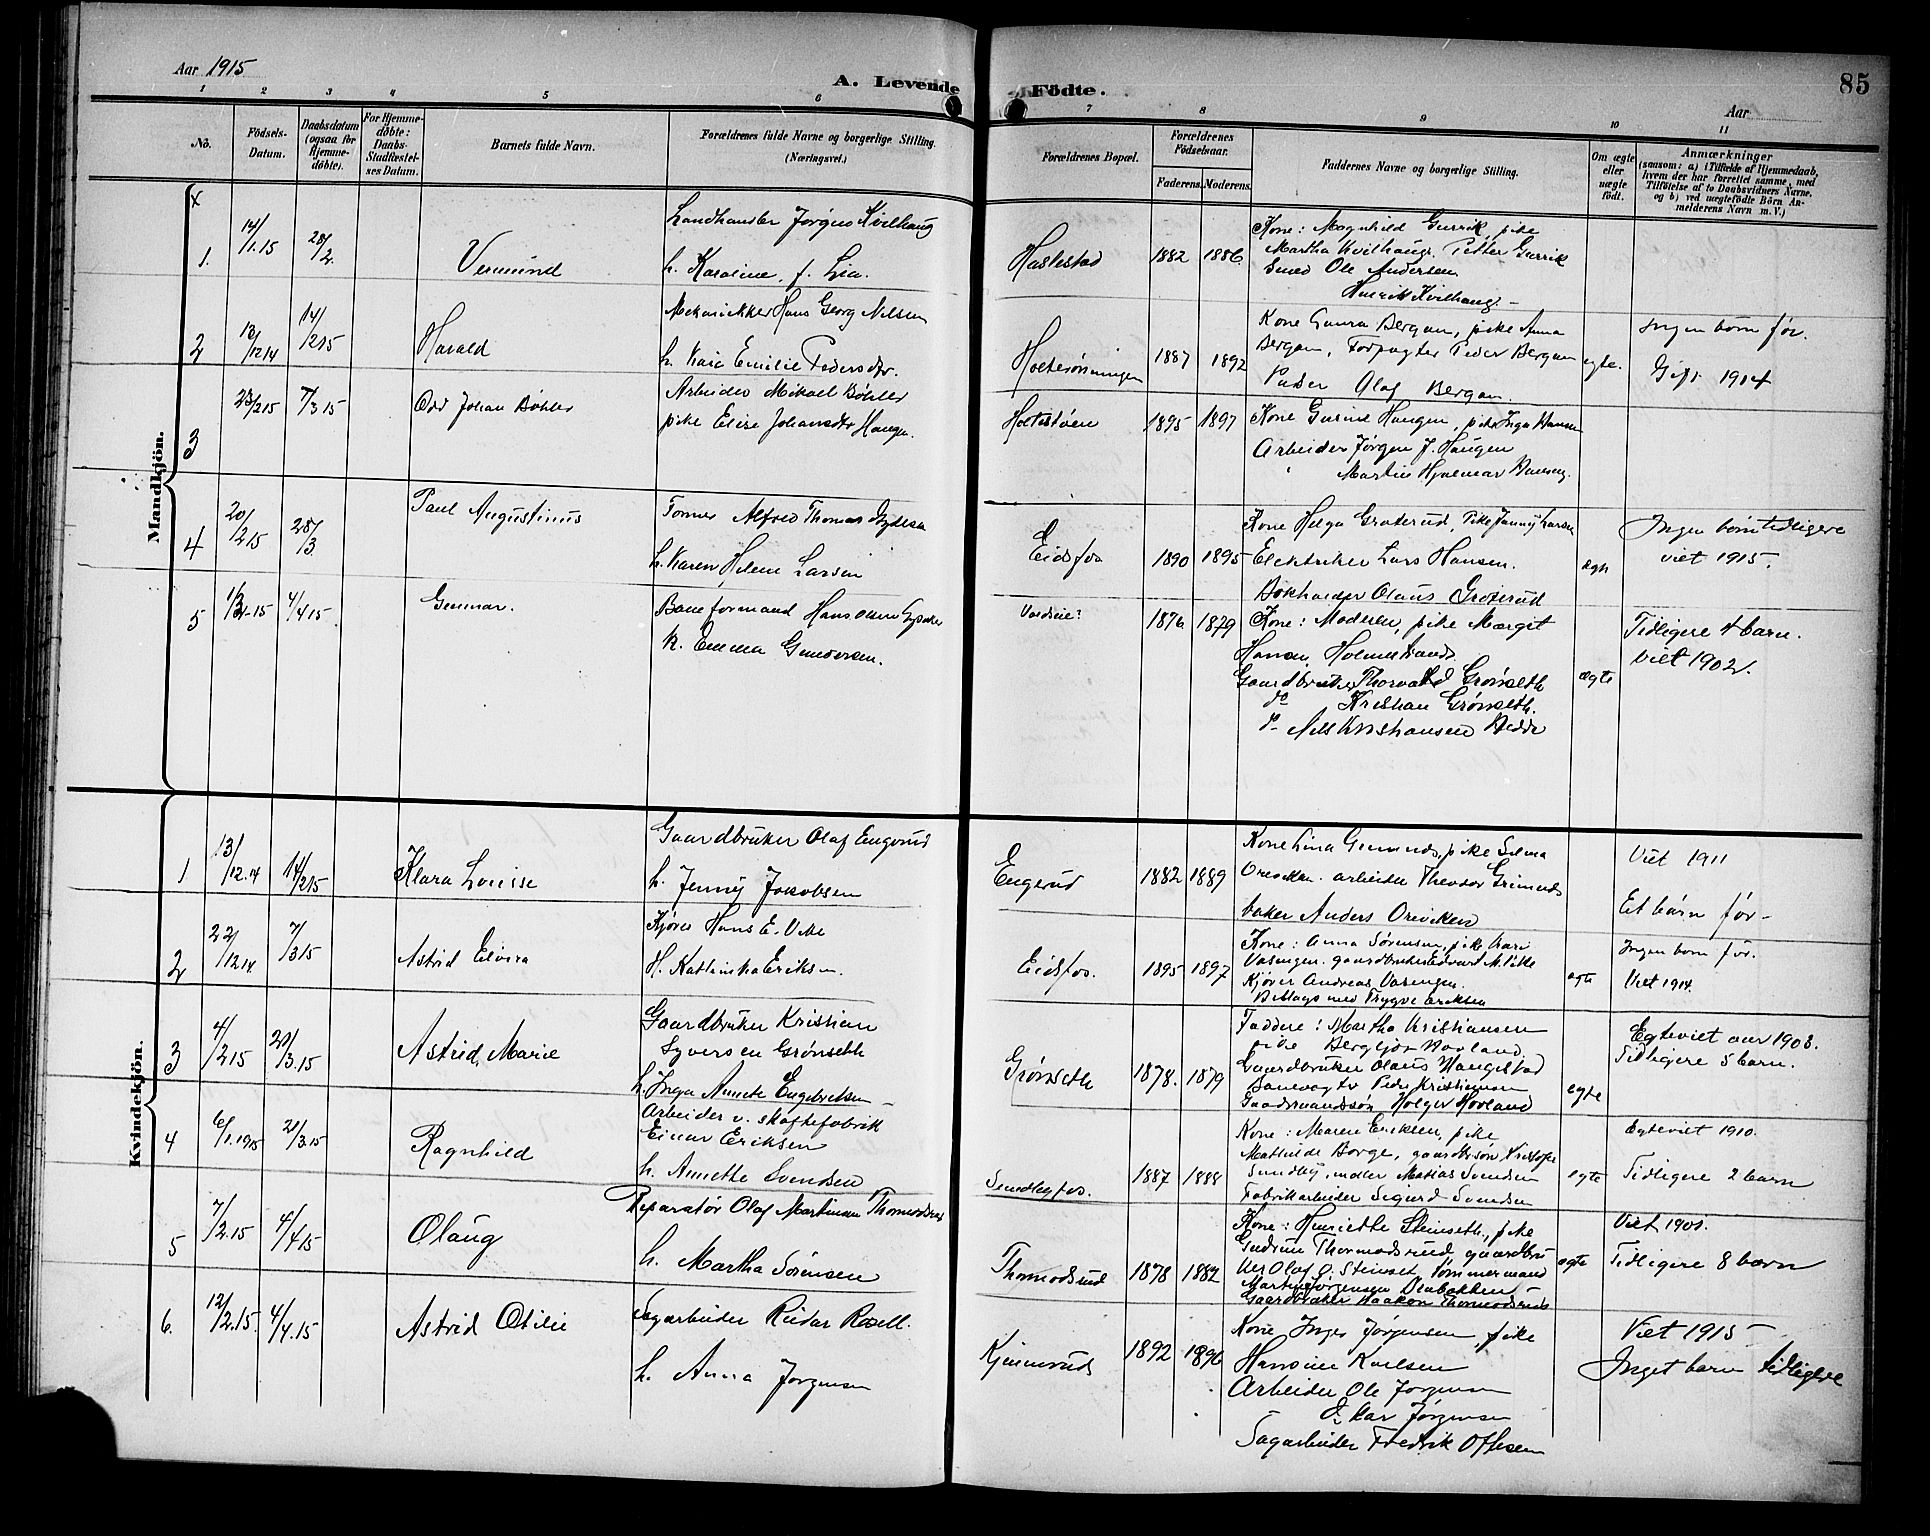 Aar 1915
A. Levende Födte.
85
Aar
1 2 3 4 5 6 7 8 9 10 11
No.
Födsels-
Datum.
Daabsdatum
(ogsaa for
Hjemme-
döbte).
For Hjemme-
döbte:
Daabs-
Stadfæstel-
ses Datum.
Barnets fulde Navn.
Forældrenes fulde Navne og borgerlige Stilling.
(Næringsvei.)
Forældrenes Bopæl.
Forældrenes
Födselsaar.
Faderens. Moderens.
Faddernes Navne og borgerlige Stilling.
Om ægte
eller
uægte
födt.
Anmærkninger
(saasom: a) i Tilfælde af Hjemmedaab,
hvem der har forrettet samme, med
Tilföielse af to Daabsvidners Navne,
og b) ved uægtefödte Börn An-
melderens Navn m. V.)
Mandkjön.
1. 14/1.15 28/2. Vermund
Landhandler Jørgen Kvilhaug
h. Karoline, f. Lia.
Haslestad 1882 1886
Kone: Magnhild Gurrik, pike
Martha Kvilhaug. Petter Gurrik
Smed Ole Andersen
Henrik Kvilhaug
2 13/12 14 14/2 15 Harald
Mekanikker Hans Georg Nilsen
h. Emilie Pedersdtr.
1887 1892
Kone Laura Bergan, pike Anna
Bergan, Forpagter Peder Bergan
Olaf Bergan.
egte.
Ingen børn før.
Gift 1914
3 23/2 15 7/3 15 Odd Johan Bøhler
Arbeider Mikael Bøhler
pike Elise Johansdtr Haugen.
1895 1897
Kone Gurine Haugen, pike Inga Hansen
Arbeider Jørgen J. Haugen
Martin Hjalmar Hansen.
4 20/2 15 28/3. Paul Augustinus
Former Alfred Thomas
h. Karen Helene Larsen
Eidsfos 1890 1895
Kone Helga Groterud, Pike Janny Larsen
Elektriker Lars Hansen.
Bokholder Olaus Groterud
ægte
Ingen børn tidligere
viet 1915.
5 4/4 15 Gunnar.
Baneformand Hans
h. Emma Gundersen.
1876 1879
Kone: Moderen, pike Margit
Hansen, Holmestrand.
Gaardbruker Thorvald Grønseth
do Kristian Grønseth.
do Nils Kristiansen
ægte
Tidligere 4 barn.
viet 1902.
Kvindekjön.
1 13/12.14 14/2 15 Klara Louise
Gaardbruker Olaf Engerud
h. Jenny Jakobsen
Engerud 1882 1889
Kone Lina, pike Selma
Oreviken. arbeider Theodor
baker Anders Oreviken
Viet 1911
Et barn før
2 22/12 14 7/3 15 Astrid Elvira
Kjører Hans E. Vike
h. Kathinka Eriksen.
Eidsfos. 1895 1897
Kone: Anna Sørensen, pike Kari
Vasengen. gaardbruker Edvard M. Vike
Kjører Andreas Vasengen.
Trygve Eriksen
egte
Ingen born før.
Viet 1914.
3 4/2 15 21/3.15 Astrid Marie
Gaardbruker Kristian
Syversen Grønseth
h. Inga Annete Engebretsen
Grønseth 1878. 1879
Faddere: Martha Kristiansen
pike Bergljot Hovland.
Gaardbruker Olaus Haugestad
Banevogter Peder Kristiansen
Gaardmandssøn Holger Hovland
egte
Egteviet aar 1903.
Tidligere 5 barn.
4 6/1.1915 21/3.15 Ragnhild
Arbeider v. skaftefabrik
Einar Eriksen
h. Annette Svendsen
Sundbyfos. 1887 1888
Kone: Maren Eriksen, pike
Mathilde Borge, gaardbrsøn Kristofer
Sundby, møller Matias Svendsen
Fabrikarbeider Sigurd Svendsen
egte
Egteviet 1910.
Tidligere 2 barn
5 7/2.15 4/4 15 Olaug
Reparatør Olaf Martinsen Thormodsrud
h. Martha Sørensen
Thormodsrud 1878 1882
Kone: Henriette Steinseth, pike
Gudrun Thormodsrud, gaardbru
ker Olaf O. Steinset, tømmermand
Martin Jørgensen
Gaardbruker Haakon Thormodsrud
egte
Viet 1901.
Tidligere 8 barn
6. 12/2.15. 4/4.15 Astrid Otilie
Sagarbeider Reidar Rosell.
h. Anna Jørgensen
1892 1896
Kone Inger Jørgensen pike
Hansine Karlsen
Arbeider Ole Jørgensen
Oskar Jørgensen
Sagarbeider Fredrik Ottesen
Viet 1915
Inget barn tidligere